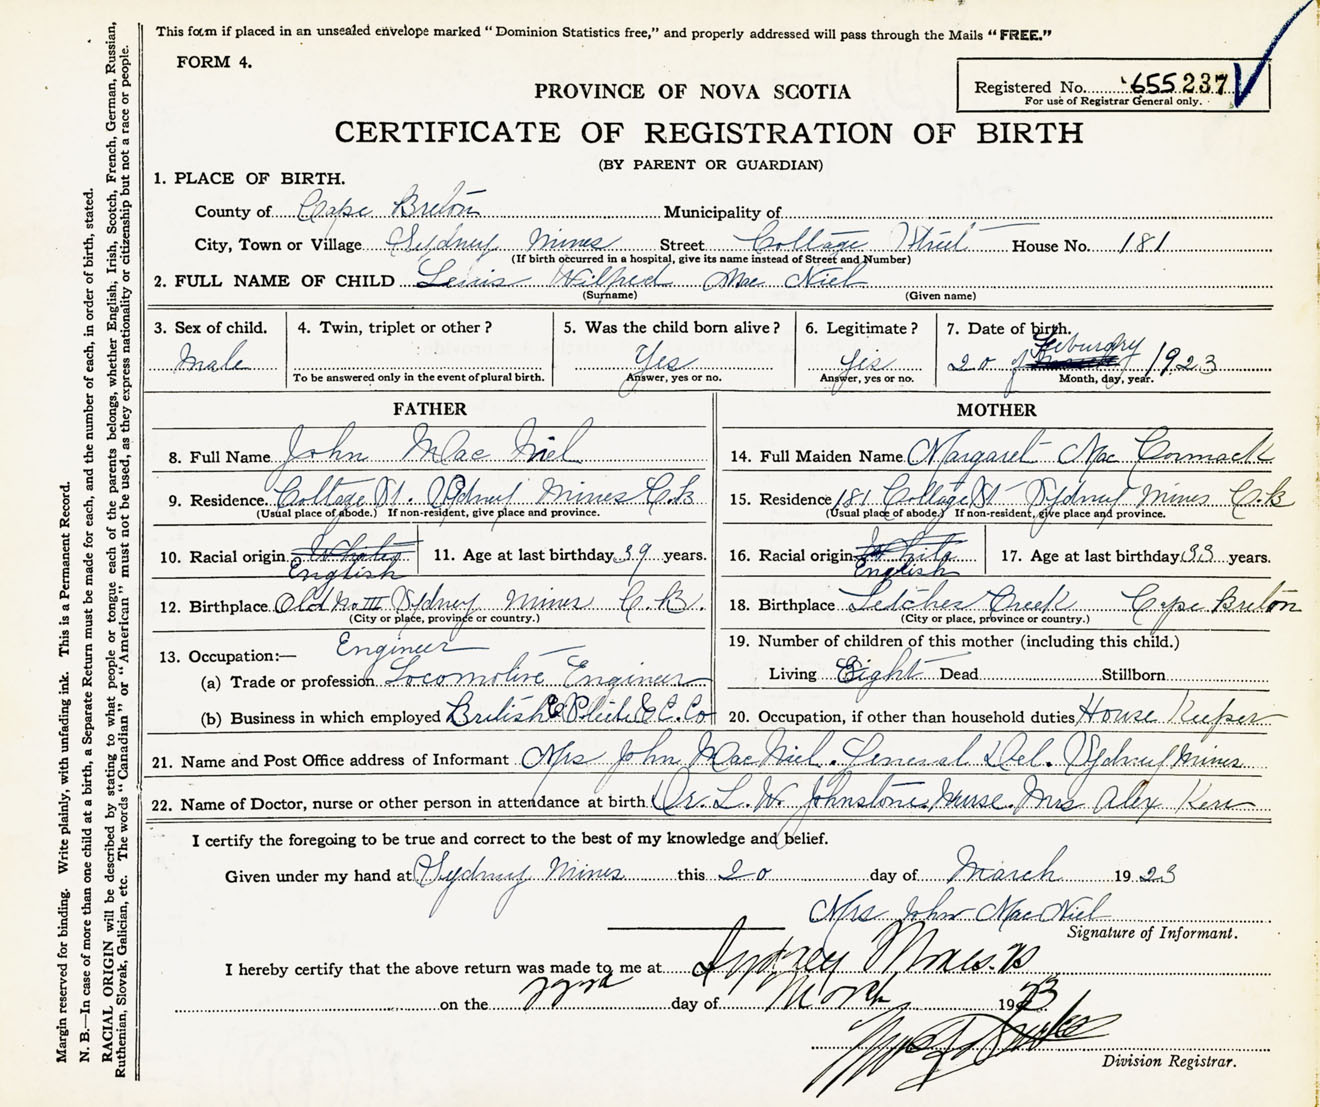 This form if placed in an unsealed envelope marked "Dominion Statistics free," and properly addressed will pass through the Mails "FREE."
FORM 4.
Registered No. 655237
For use of Registrar General only.
PROVINCE OF NOVA SCOTIA
CERTIFICATE OF REGISTRATION OF BIRTH
(BY PARENT OR GUARDIAN)
1. PLACE OF BIRTH.
County of Cape Breton Municipality of
City, Town or Village Sydney Mines Street Cottage Street House No. 181
(If birth occurred in a hospital, give its name instead of Street and Number)
2. FULL NAME OF CHILD Lewis Wilfred Mac Niel
(Surname) (Given name)
3. Sex of child. 4. Twin, triplet or other? 5. Was the child born alive? 6. Legitimate? 7. Date of birth.
Male Yes Yes 20 of Feburary 1923
To be answered only in the event of plural birth. Answer, yes or no. Answer, yes or no. Month, day, year.
FATHER MOTHER
8. Full Name John Mac Niel 14. Full Maiden Name Margaret Mac Cormack
9. Residence Cottage St. Sydney Mines C.B 15. Residence 181 Cottage St Sydney Mines C.B
(Usual place of abode.) If non-resident, give place and province. (Usual place of abode.) If non-resident, give place and province.
10. Racial origin English 11. Age at last birthday 39 years. 16. Racial origin White English 17. Age at last birthday 33 years.
12. Birthplace Old No III Sydney Mines C.B. 18. Birthplace Letches Creek Cape Breton
(City or place, province or country.) (City or place, province or country.)
13. Occupation:— Engineer 19. Number of children of this mother (including this child.)
(a) Trade or profession Locomotive Engineer Living Eight Dead Stillborn
(b) Business in which employed British C. Co 20. Occupation, if other than household duties House Keeper
21. Name and Post Office address of Informant Mrs John Mac Niel. General Del. Sydney Mines
22. Name of Doctor, nurse or other person in attendance at birth. Dr. L. W. Johnstone. Nurse. Mrs Alex Kerr
I certify the foregoing to be true and correct to the best of my knowledge and belief.
Given under my hand at Sydney Mines this 20 day of March 1923
Mrs John Mac Niel
Signature of Informant.
I hereby certify that the above return was made to me at Sydney Mines
on the day of March 1923
Division Registrar.
Margin reserved for binding. Write plainly, with unfading ink. This is a Permanent Record.
N. B.—In case of more than one child at a birth, a Separate Return must be made for each, and the number of each, in order of birth, stated.
RACIAL ORIGIN will be described by stating to what people or tongue each of the parents belongs, whether English, Irish, Scotch, French, German, Russian,
Ruthenian, Slovak, Galician, etc. The words "Canadian" or "American" must not be used, as they express nationality or citizenship but not a race or people.